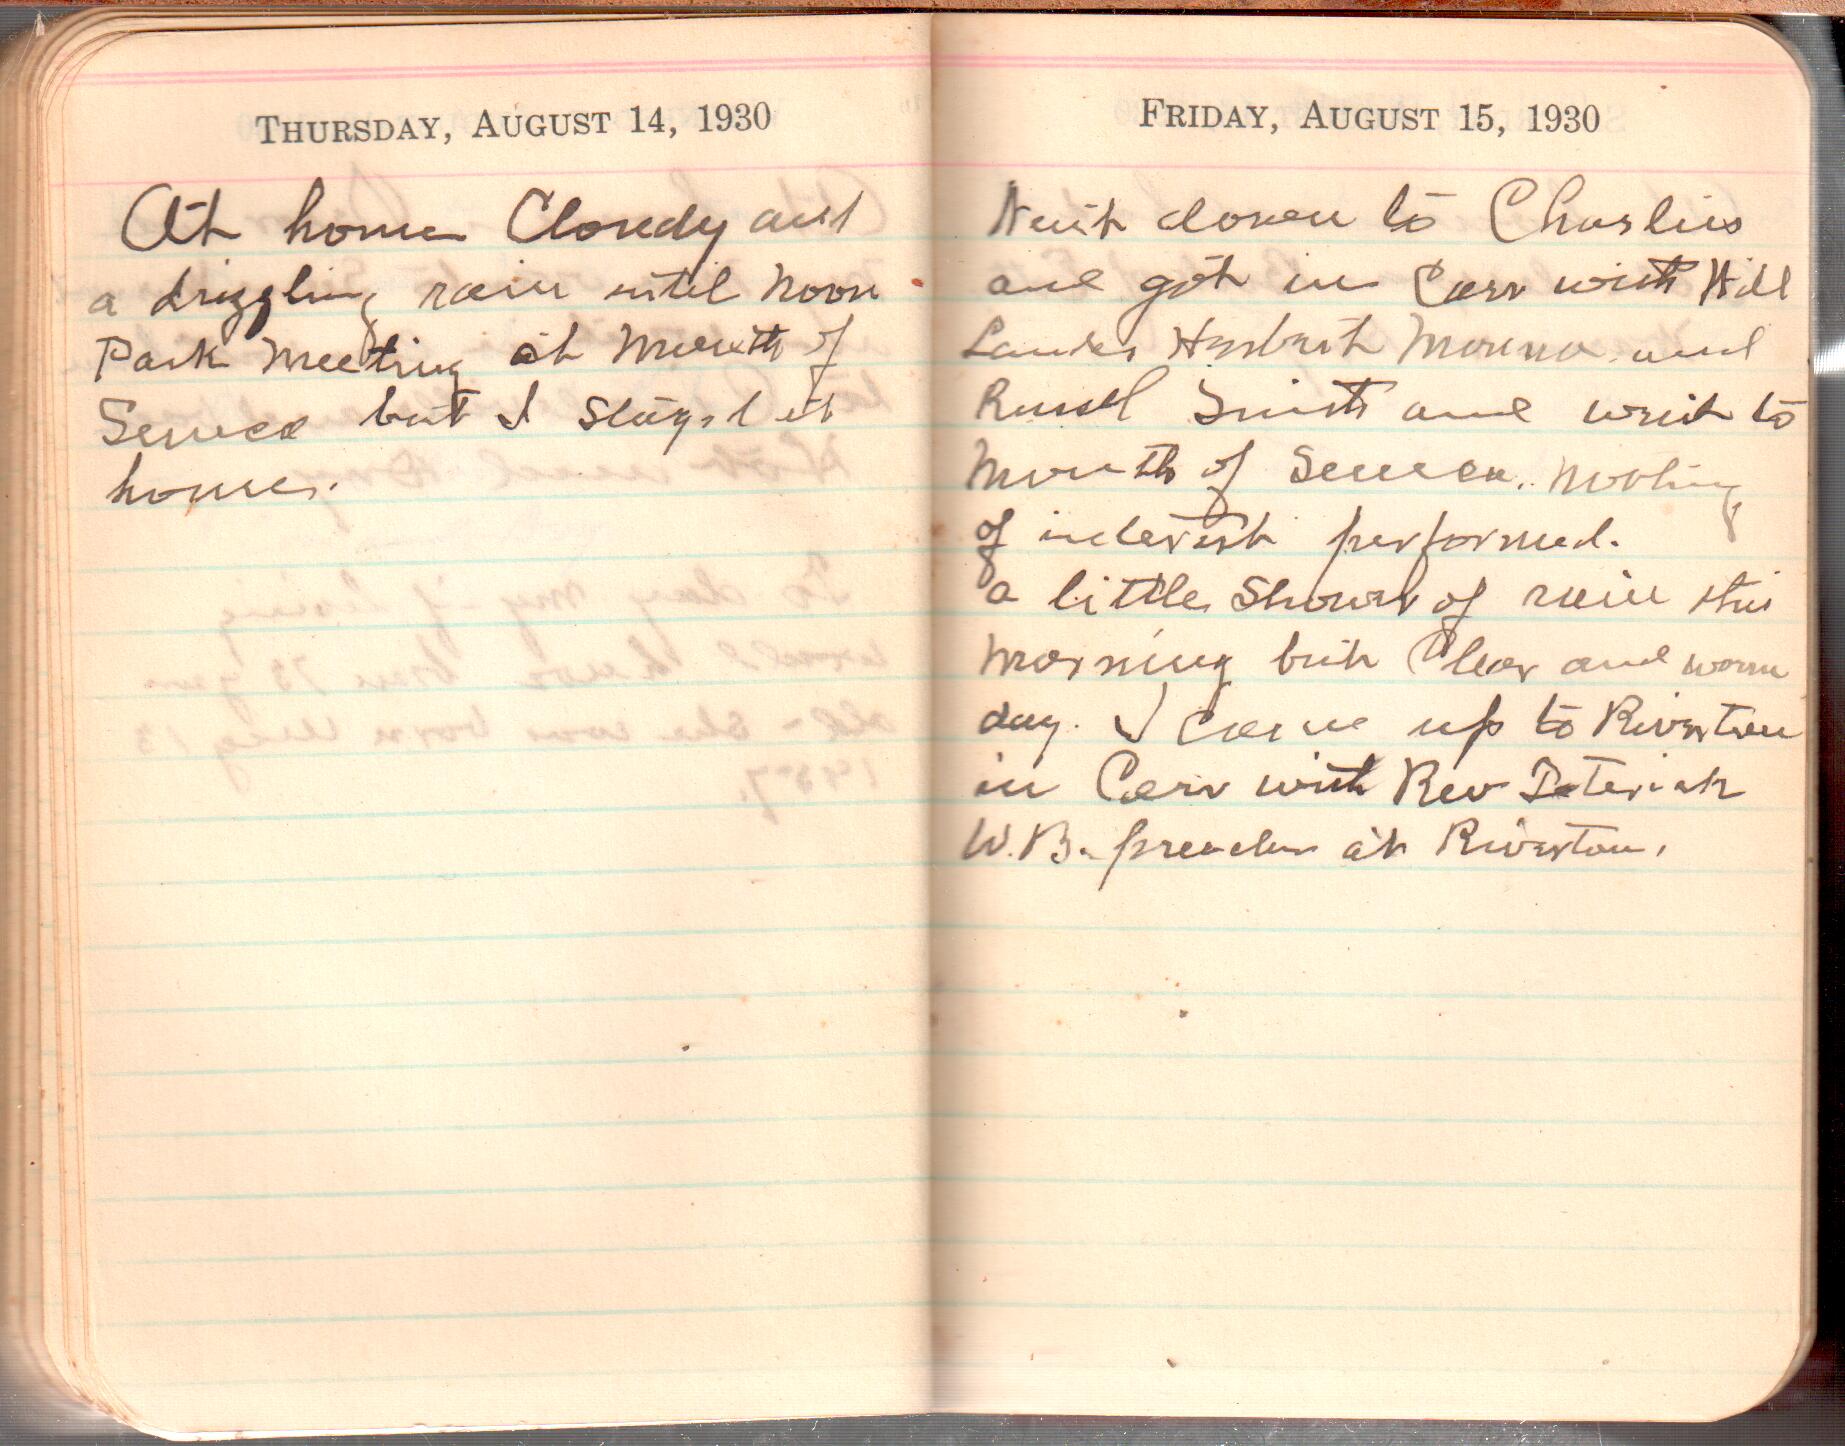 THURSDAY, AUGUST 14, 1930
At home Cloudy and
a drizzling rain until Noon
Park Meeting at Mouth of
Seneca but I stayed at
home.
FRIDAY, AUGUST 15, 1930
Went down to Charlies
and got in Carr with Will
Herbert and
Russel Smith and went to
Mouth of Seneca. Nothing
of interest performed.
a little Shower of rain this
morning but Clear and worm
day. I came up to Riverton
in Carr with Rev
U.B. preacher at Riverton.